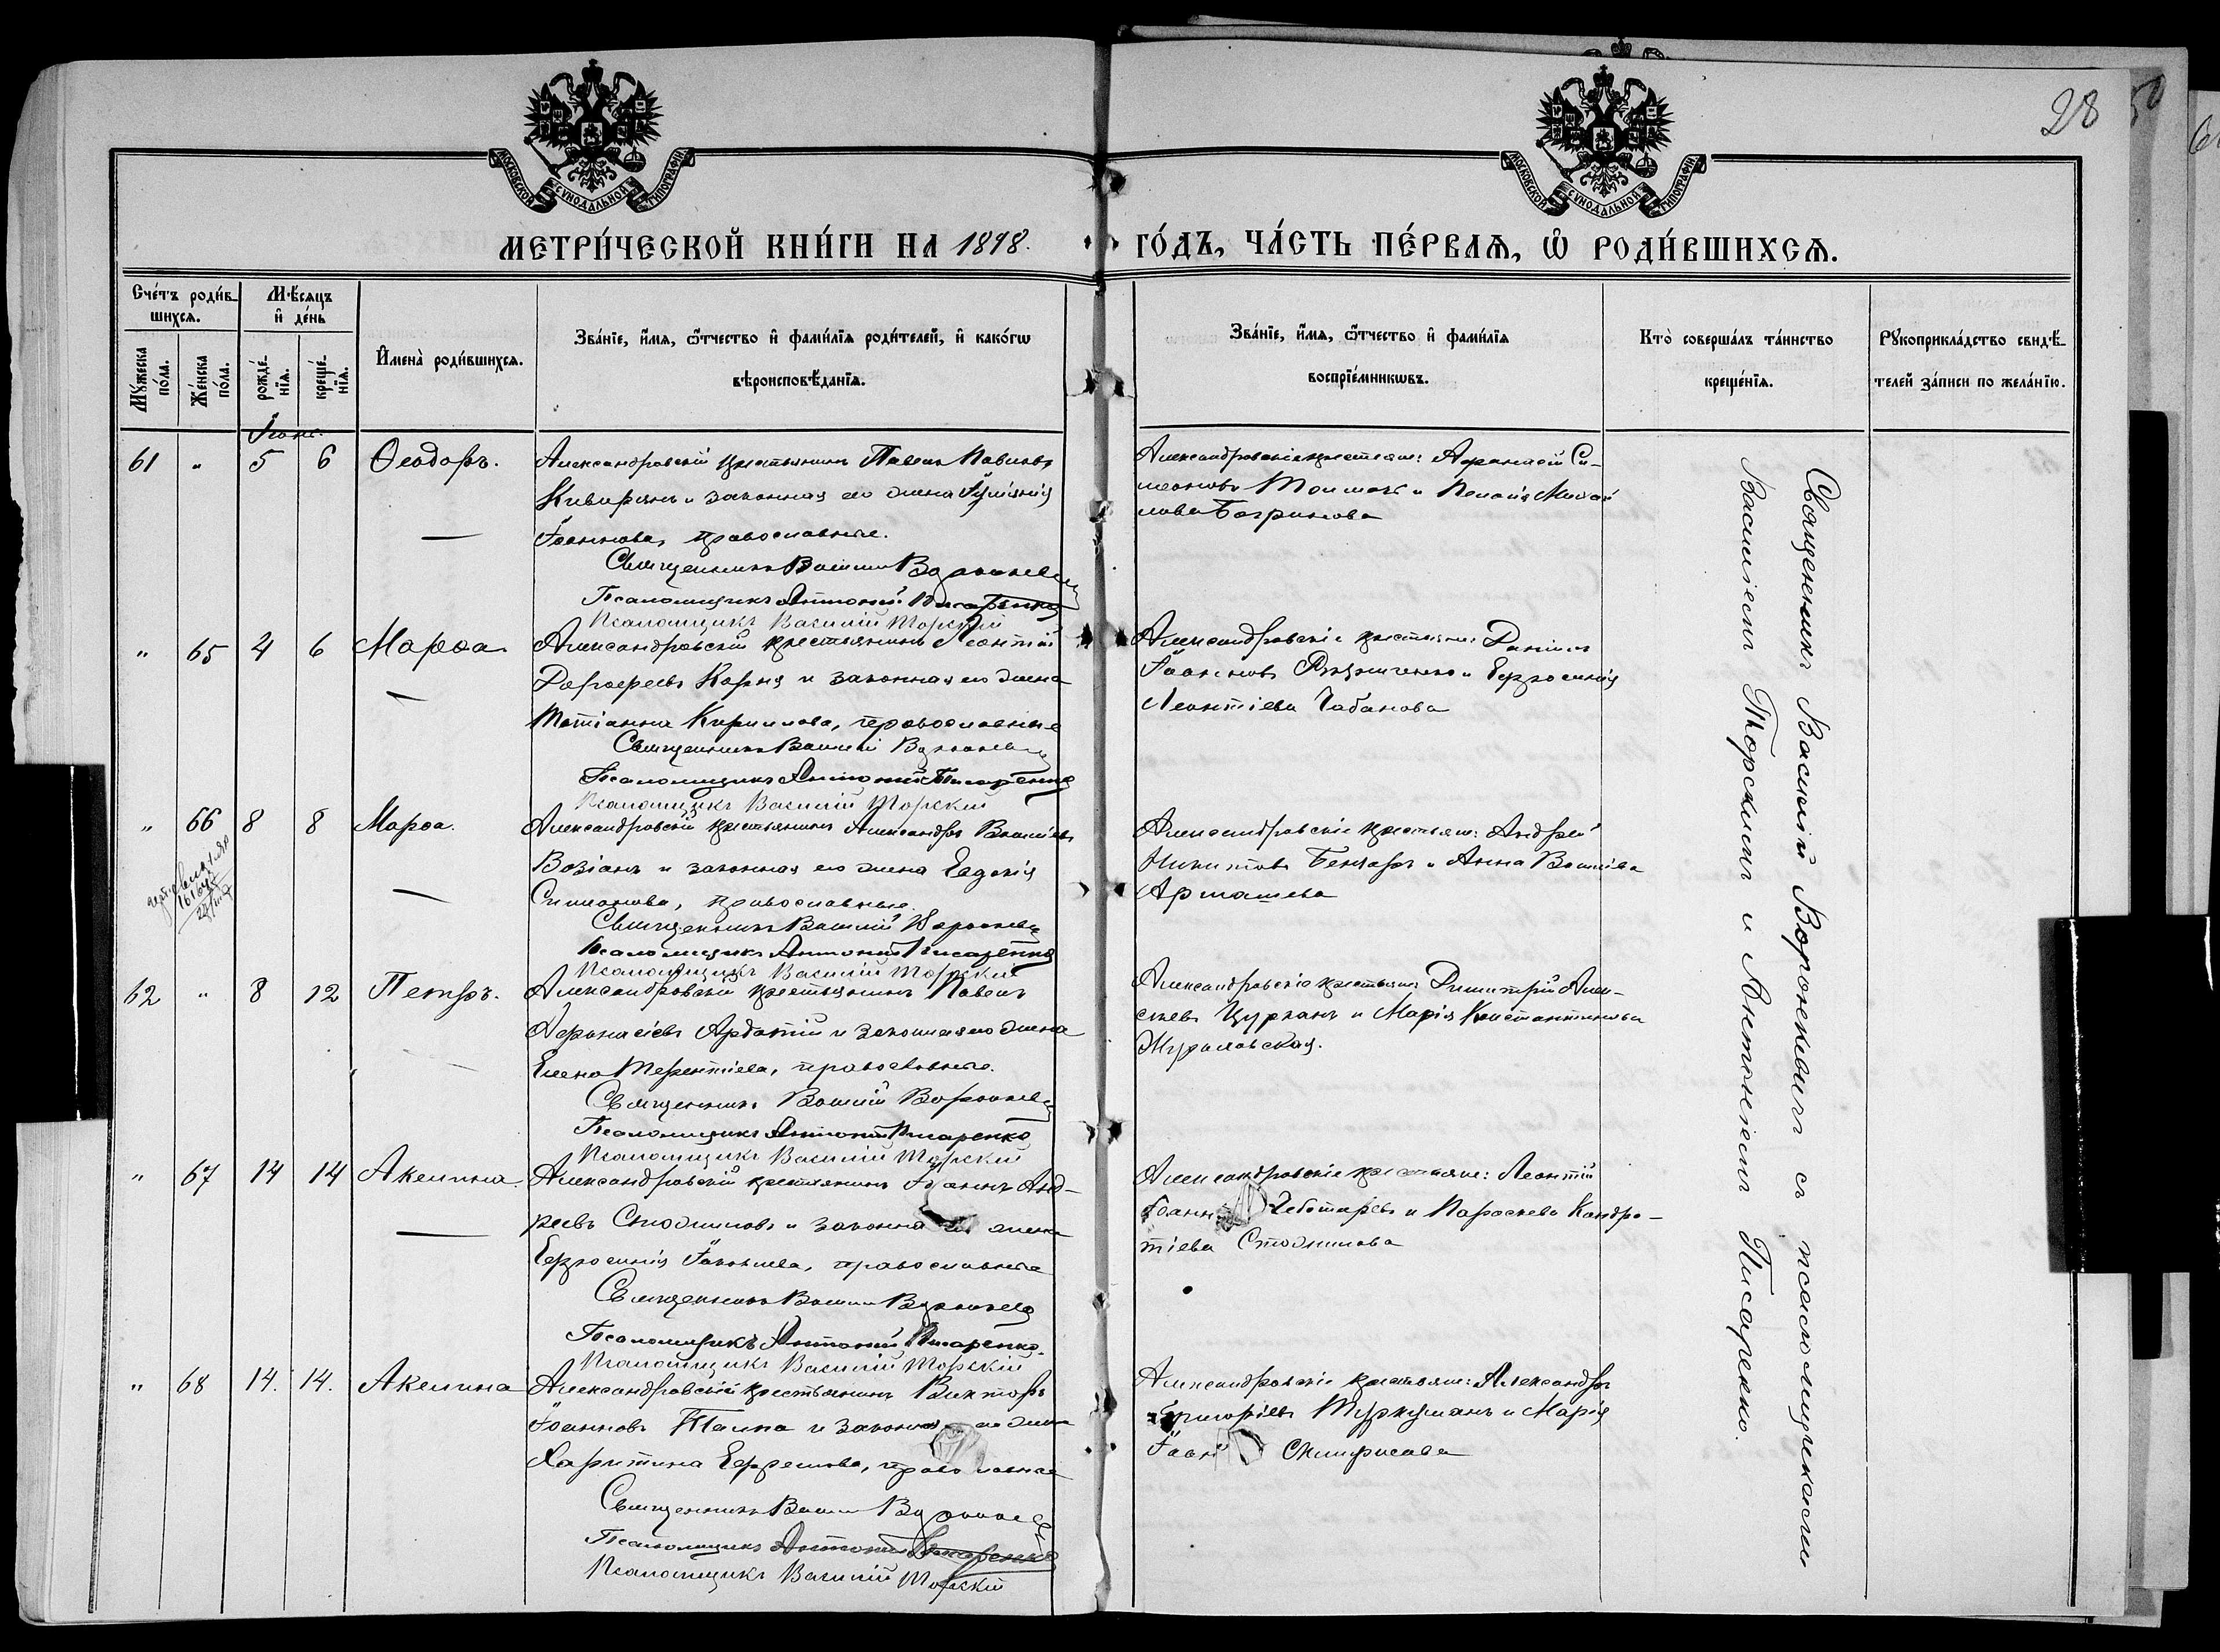 28
МОСКОВСКОЙ СУНОДАЛЬНОЙ ТИПОГРАФІИ
МОСКОВСКОЙ СУНОДАЛЬНОЙ ТИПОГРАФІИ
МЕТРИ́ЧЕСКОЙ КНИ́ГИ НА 1898.
ГО́ДЪ, ЧА́СТЬ ПЕ́РВАѦ, Ѡ РОДИ́ВШИХСѦ.
Сче́тъ роди́в-
шихсѧ.
Мꙋ́жеска по́ла.
Же́нска по́ла.
Мѣ́сѧцъ и де́нь
рожде́-нїѧ.
креще́-нїѧ.
Имена̀ роди́вшихсѧ.
Зва́нїе, и́мѧ, ѻ҆́тчество и фами́лїѧ роди́телей, и како́гѡ
вѣроисповѣ́данїѧ.
Зва́нїе, и́мѧ, ѻ҆́тчество и фами́лїѧ
воспрїе́мникѡвъ.
Кто̀ соверша́лъ та́инство
креще́нїѧ.
Рꙋкоприкла́дство свидѣ́-
телей за́писи по жела́нїю.
Іюнь.
61 " 5 6 Ѳеодоръ. Александровскій крестьянинъ Павелъ Павловъ
и законная его жена Іуліанія
Іоаннова, православные.
Священникъ Василій Воронкевичъ
Псаломщикъ Антоній Писаренко
Псаломщикъ Василій Торскій
Александровскіе крестьяне: Аѳанасій Си-
меоновъ и Пелагія Михаи
лова Багринова
" 65 4 6 Марѳа Александровскій крестьянинъ Леонтій
Дороѳеевъ Корня и законная его жена
Татіанна Кириллова, православные
Священникъ Василій Воронкевичъ
Псаломщикъ Антоній Писаренко
Псаломщикъ Василій Торскій
Александровскіе крестьяне: Даніилъ
Іоанновъ Рѣзниченко и Евфросинія
Леонтіева Чабанова
" 66 8 8 Марѳа. Александровскій крестьянинъ Александръ Василіевъ
Возіанъ и законная его жена Евдокія
Симеонова, православные.
Священникъ Василій Воронкевичъ
Псаломщикъ Антоній Писаренко
Псаломщикъ Василій Торскій
Александровскіе крестьяне: Андрей
Никитовъ Бенгаръ и Анна Василіева
Армашева
62 " 8 12 Петръ. Александровскій крестьянинъ Павелъ
Аѳанасіевъ Ардатій и законная его жена
Елена Терентіева, православные.
Священникъ Василій Воронкевичъ
Псаломщикъ Антоній Писаренко
Псаломщикъ Василій Торскій
Александровскіе крестьяне: Димитрій Алек-
сѣевъ Цурканъ и Марія Константинова
Жураловская.
" 67 14 14 Акелина. Александровскій крестьянинъ Іоаннъ Анд-
реевъ и законная его жена
Евфросинія Іаковлева, православные
Священникъ Василій Воронкевичъ
Псаломщикъ Антоній Писаренко.
Псаломщикъ Василій Торскій
Александровскіе крестьяне: Леонтій
Іоанн Чеботаревъ и Параскева Кондра-
тіева
" 68 14. 14. Акелина Александровскій крестьянинъ Викторъ
Іоанновъ и законная его жена
Харитина Ефремова, православные
Священникъ Василій Воронкевичъ
Псаломщикъ Антоній Писаренко
Псаломщикъ Василій Торскій
Александровскіе крестьяне: Александръ
Григоріевъ Туркуманъ и Марія
Іоан
Священникъ Василій Воронкевичъ съ псаломщиками
Василіемъ Торскимъ и Антоніемъ Писаренко.